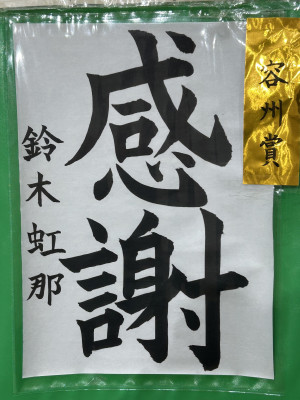 容州賞
感謝
鈴木虹那